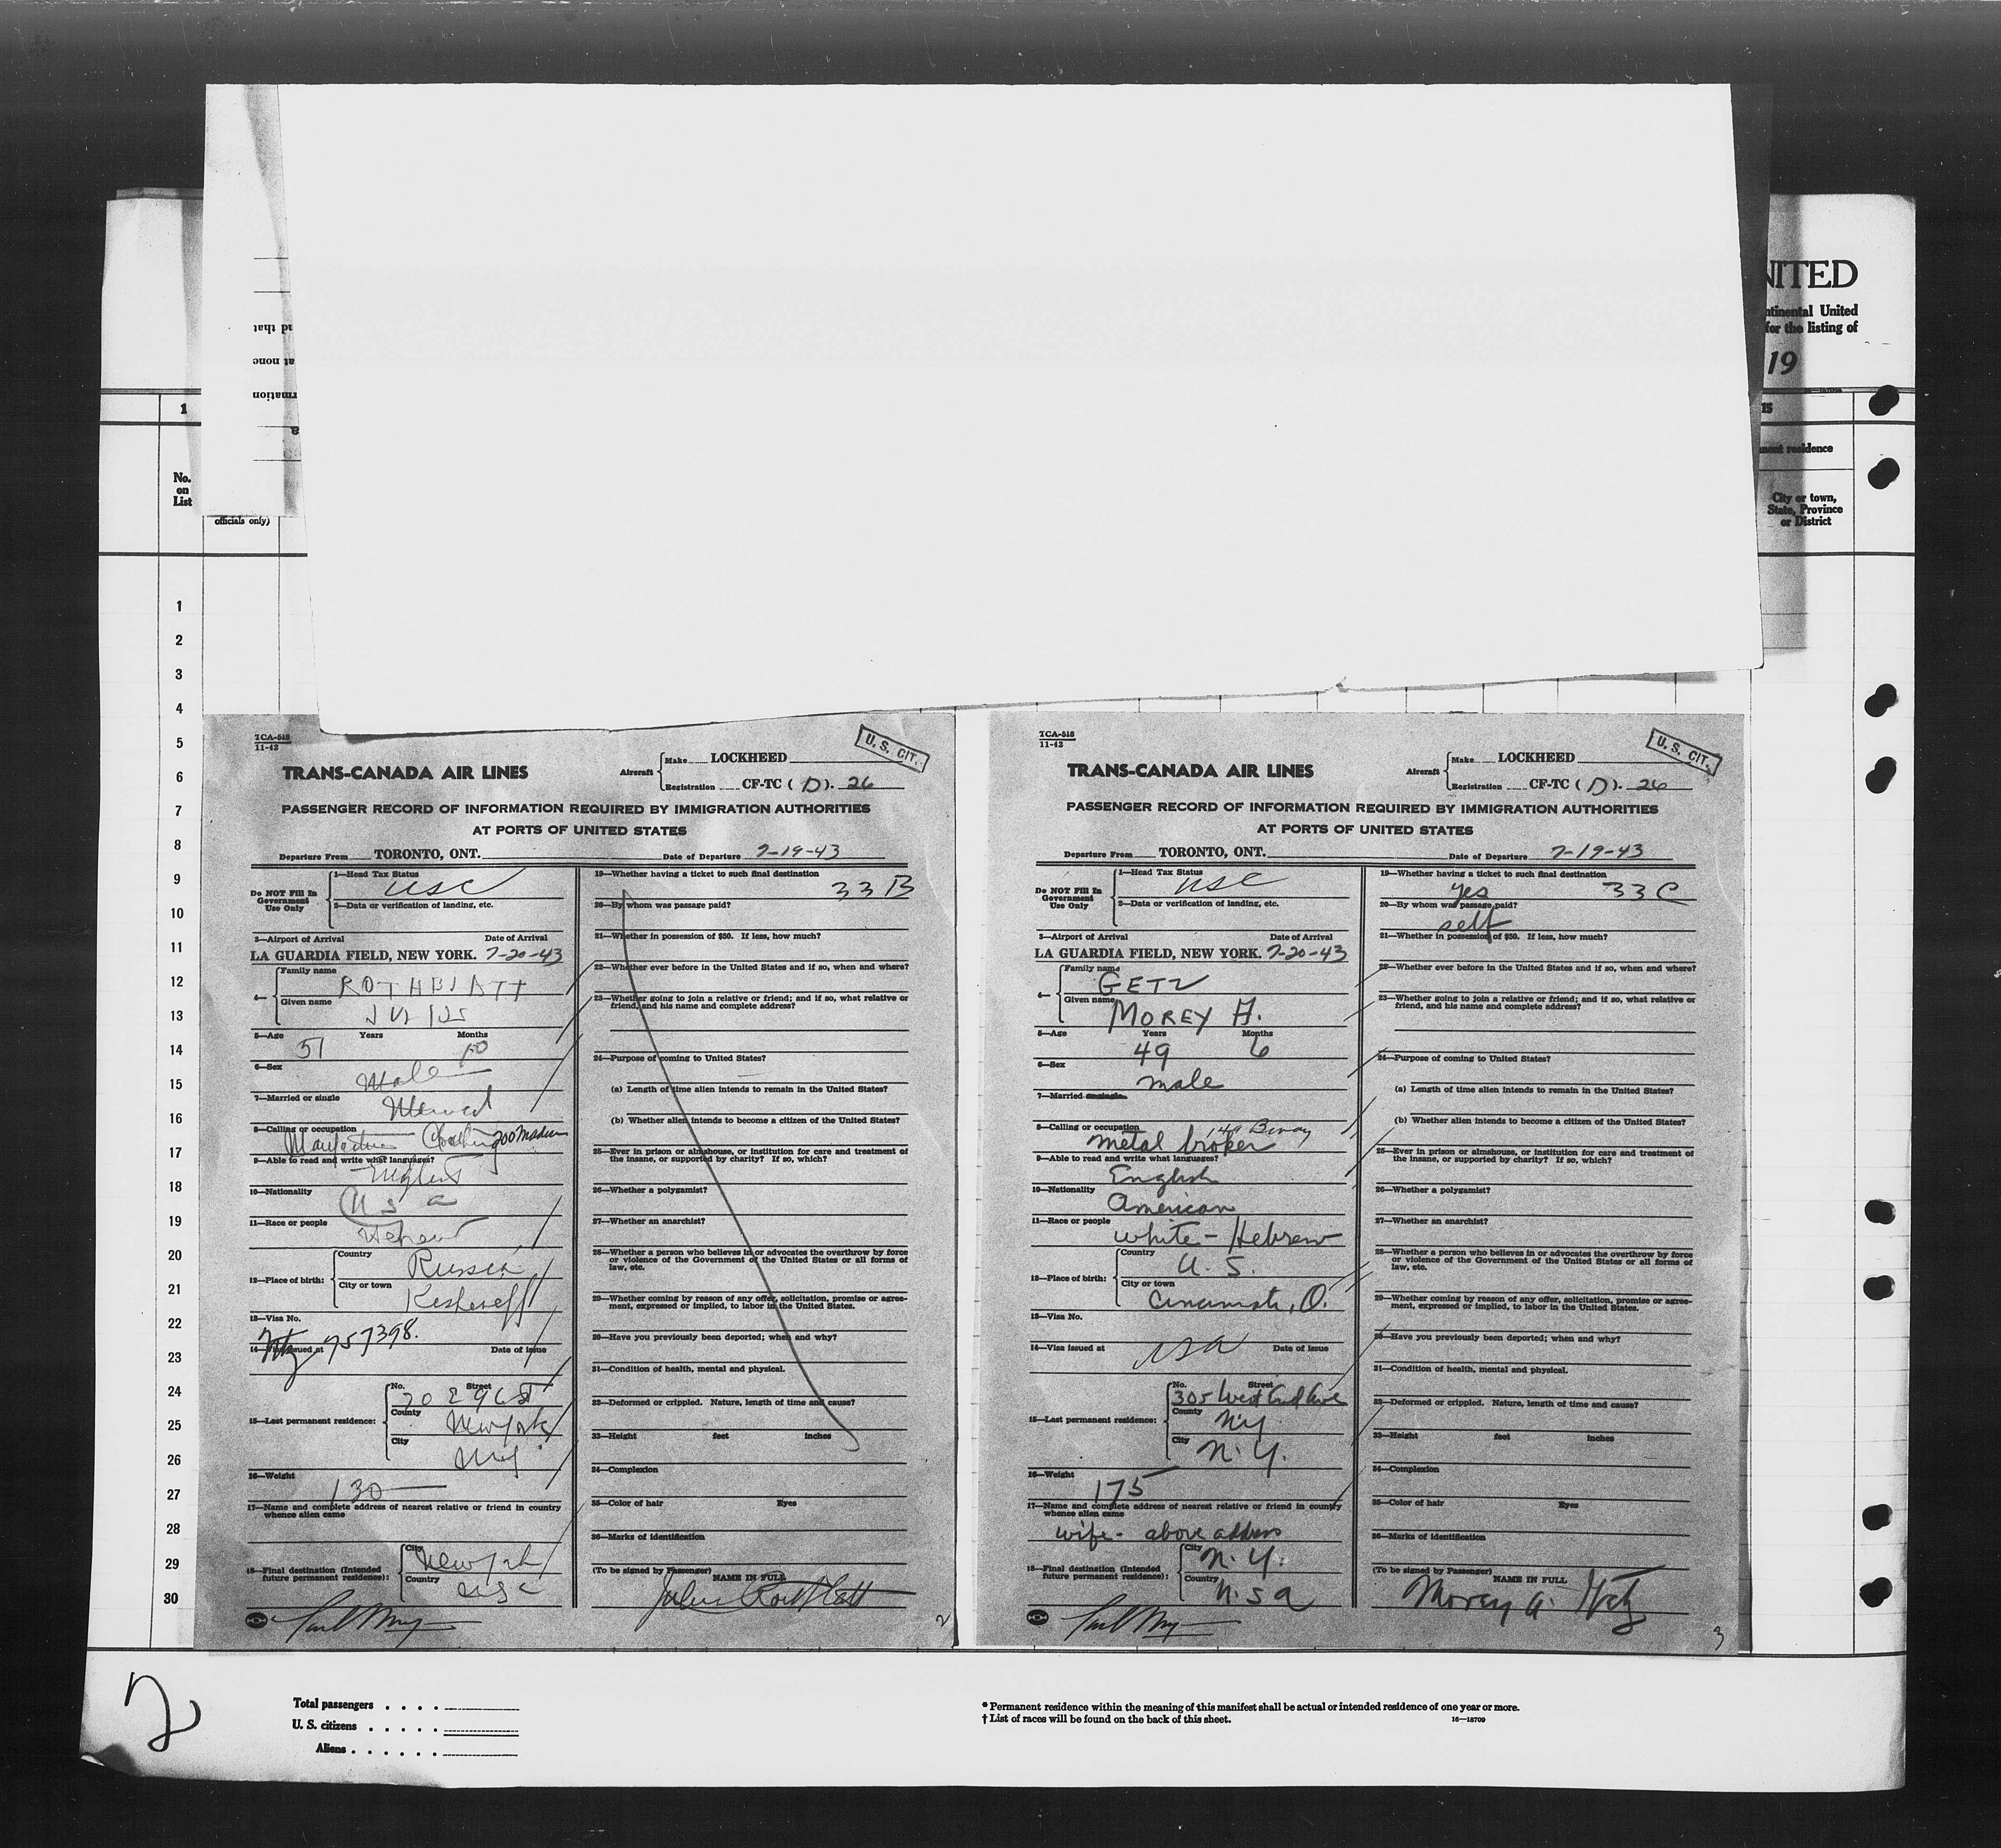 NITED
ntinental United
for the listing of
19
nd that
at none
rmation
1
15
No.
on
List
officials only)
nent residence
City or town,
State, Province
or District
1
2
3
4
5
6
7
8
9
10
11
12
13
14
15
16
17
18
19
20
21
22
23
24
25
26
27
28
29
30
TCA-518
11-42
U. S. CIT.
TRANS-CANADA AIR LINES
Aircraft
Make LOCKHEED
Registration CF-TC (D). 26
PASSENGER RECORD OF INFORMATION REQUIRED BY IMMIGRATION AUTHORITIES
AT PORTS OF UNITED STATES
Departure From TORONTO, ONT. Date of Departure 7-19-43
Do NOT Fill In
Government
Use Only
1—Head Tax Status
USC
2—Data or verification of landing, etc.
3—Airport of Arrival Date of Arrival
LA GUARDIA FIELD, NEW YORK. 7-20-43
4—
Family name
ROTHBLATT
Given name
JULIUS
5—Age Years Months
51 10
6—Sex
Male
7—Married or single
Married
8—Calling or occupation
Clothing 200 Madison
9—Able to read and write what languages?
English
10—Nationality
U S a
11—Race or people
Hebrew
12—Place of birth:
Country
Russia
City or town
Kesheneff
13—Visa No.
757398.
14—Visa issued at Date of issue
15—Last permanent residence:
No. Street
70 E 96 St
County
New York
City
N.Y.
16—Weight
130
17—Name and complete address of nearest relative or friend in country
whence alien came
18—Final destination (Intended
future permanent residence):
City
New York
Country
USA
19—Whether having a ticket to such final destination
33 B
20—By whom was passage paid?
21—Whether in possession of $50. If less, how much?
22—Whether ever before in the United States and if so, when and where?
23—Whether going to join a relative or friend; and if so, what relative or
friend, and his name and complete address?
24—Purpose of coming to United States?
(a) Length of time alien intends to remain in the United States?
(b) Whether alien intends to become a citizen of the United States?
25—Ever in prison or almshouse, or institution for care and treatment of
the insane, or supported by charity? If so, which?
26—Whether a polygamist?
27—Whether an anarchist?
28—Whether a person who believes in or advocates the overthrow by force
or violence of the Government of the United States or all forms of
law, etc.
29—Whether coming by reason of any offer, solicitation, promise or agree-
ment, expressed or implied, to labor in the United States.
30—Have you previously been deported; when and why?
31—Condition of health, mental and physical.
32—Deformed or crippled. Nature, length of time and cause?
33—Height feet inches
34—Complexion
35—Color of hair Eyes
36—Marks of identification
(To be signed by Passenger) NAME IN FULL
Julius Rothblatt
2
TCA-518
11-42
U. S. CIT.
TRANS-CANADA AIR LINES
Aircraft
Make LOCKHEED
Registration CF-TC (D). 26
PASSENGER RECORD OF INFORMATION REQUIRED BY IMMIGRATION AUTHORITIES
AT PORTS OF UNITED STATES
Departure From TORONTO, ONT. Date of Departure 7-19-43
Do NOT Fill In
Government
Use Only
1—Head Tax Status
USC
2—Data or verification of landing, etc.
3—Airport of Arrival Date of Arrival
LA GUARDIA FIELD, NEW YORK. 7-20-43
4—
Family name
GETZ
Given name
MOREY A.
5—Age Years Months
49 6
6—Sex
male
7—Married or single
8—Calling or occupation
149 Bway
metal broker
9—Able to read and write what languages?
English
10—Nationality
American
11—Race or people
white - Hebrew
12—Place of birth:
Country
U. S.
City or town
Cincinnati, O.
13—Visa No.
14—Visa issued at Date of issue
USA
15—Last permanent residence:
No. Street
305 West End Ave
County
N.Y.
City
N. Y.
16—Weight
175
17—Name and complete address of nearest relative or friend in country
whence alien came
wife - above address
18—Final destination (Intended
future permanent residence):
City
N. Y.
Country
U. S a
19—Whether having a ticket to such final destination
yes 33 C
20—By whom was passage paid?
self
21—Whether in possession of $50. If less, how much?
22—Whether ever before in the United States and if so, when and where?
23—Whether going to join a relative or friend; and if so, what relative or
friend, and his name and complete address?
24—Purpose of coming to United States?
(a) Length of time alien intends to remain in the United States?
(b) Whether alien intends to become a citizen of the United States?
25—Ever in prison or almshouse, or institution for care and treatment of
the insane, or supported by charity? If so, which?
26—Whether a polygamist?
27—Whether an anarchist?
28—Whether a person who believes in or advocates the overthrow by force
or violence of the Government of the United States or all forms of
law, etc.
29—Whether coming by reason of any offer, solicitation, promise or agree-
ment, expressed or implied, to labor in the United States.
30—Have you previously been deported; when and why?
31—Condition of health, mental and physical.
32—Deformed or crippled. Nature, length of time and cause?
33—Height feet inches
34—Complexion
35—Color of hair Eyes
36—Marks of identification
(To be signed by Passenger) NAME IN FULL
Morey A. Getz
3
2
Total passengers
U. S. citizens
Aliens
* Permanent residence within the meaning of this manifest shall be actual or intended residence of one year or more.
† List of races will be found on the back of this sheet.
16—18709